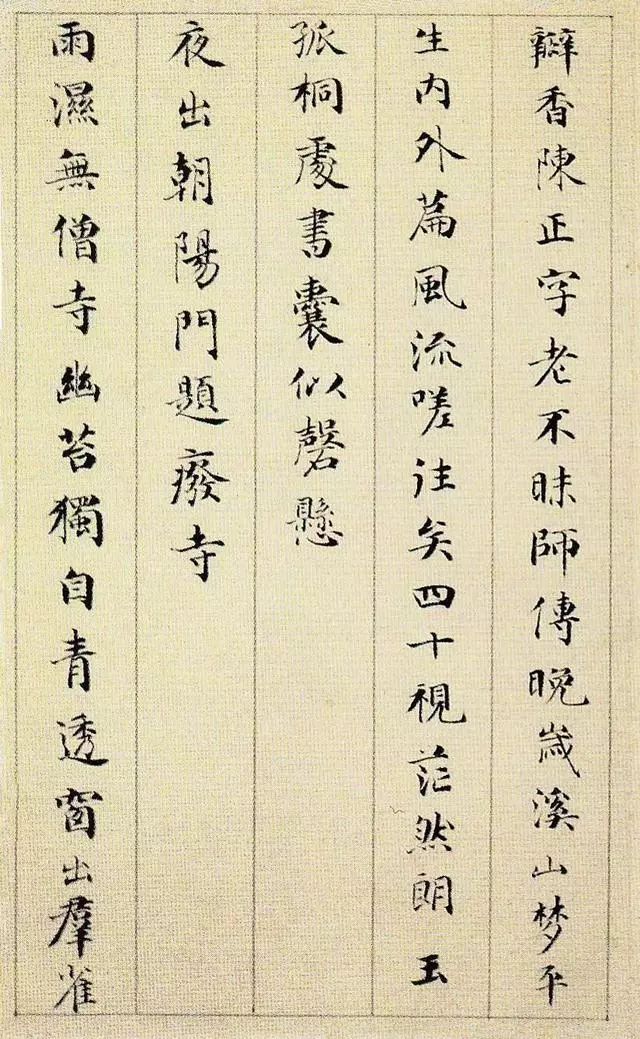 瓣香陳正字老不昧師傳晚歲溪山梦平
生內外篇風流嗟往矣四十視茫然朗玉
孤桐處書囊似磬懸
夜出朝陽門題廢寺
雨濕無僧寺幽苔獨自青透窗出羣雀